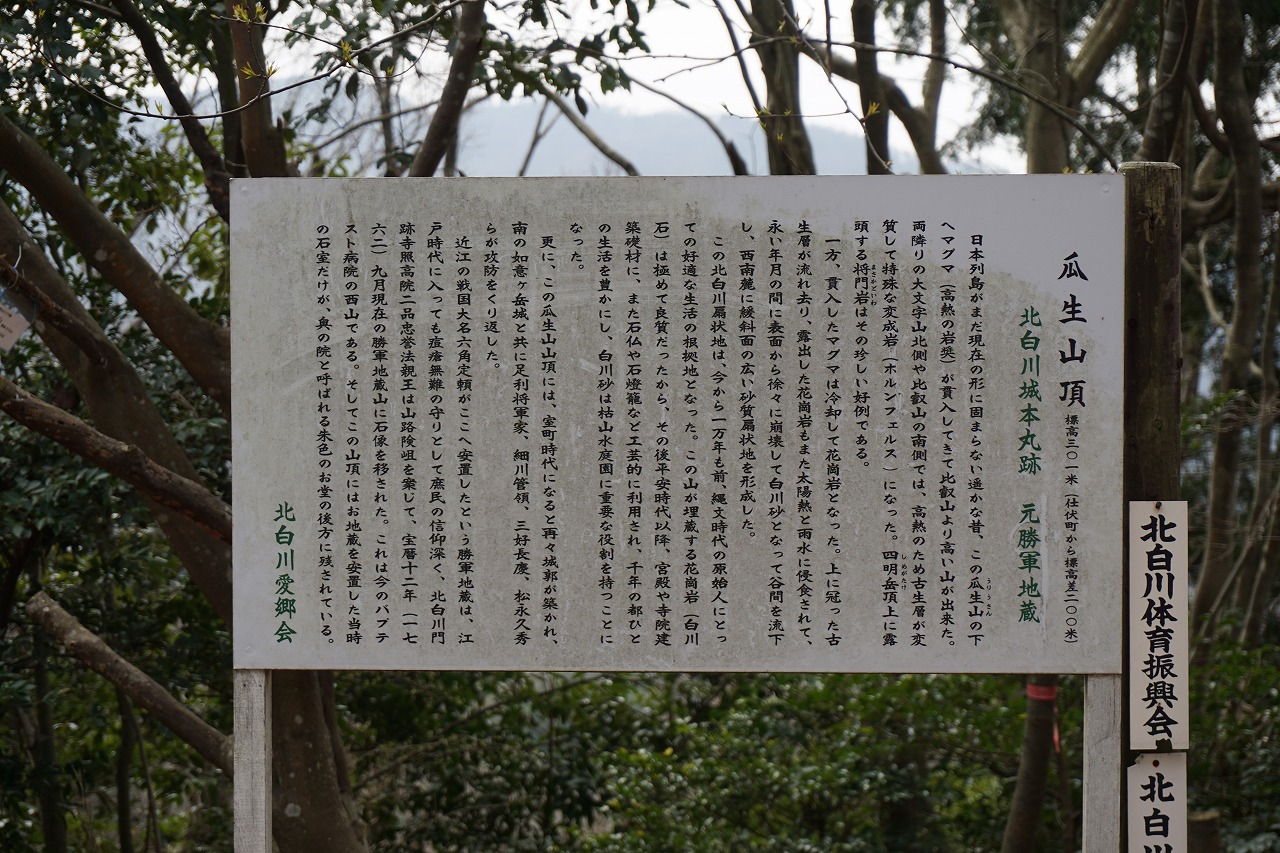 瓜生山頂 標高三〇一米(仕伏町から標高差二〇〇米)
北白川城本丸跡 元勝軍地蔵
日本列島がまだ現在の形に固まらない遥かな昔、この瓜生山の下
うりうさん
へマグマ(高熱の岩奬)が貫入してきて比叡山より高い山が出来た。
両隣りの大文字山北側や比叡山の南側では、高熱のため古生層が変
質して特殊な変成岩(ホルンフェルス)になった。四明岳頂上に露
しめがたけ
頭する将門岩はその珍しい好例である。
まさかどいわ
一方、貫入したマグマは冷却して花崗岩となった。上に冠った古
生層が流れ去り、露出した花崗岩もまた太陽熱と雨水に侵食されて、
永い年月の間に表面から徐々に崩壊して白川砂となって谷間を流下
し、西南麓に緩斜面の広い砂質扇状地を形成した。
この北白川扇状地は、今から一万年も前、縄文時代の原始人にとっ
ての好適な生活の根拠地となった。この山が埋蔵する花崗岩(白川
石)は極めて良質だったから、その後平安時代以降、宮殿や寺院建
築礎材に、また石仏や石燈籠など工芸的に利用され、千年の都びと
の生活を豊かにし、白川砂は枯山水庭園に重要な役割を持つことに
なった。
更に、この瓜生山山頂には、室町時代になると再々城郭が築かれ、
南の如意ヶ岳城と共に足利将軍家、細川管領、三好長慶、松永久秀
らが攻防をくり返した。
近江の戦国大名六角定頼がここへ安置したという勝軍地蔵は、江
戸時代に入っても痘瘡無難の守りとして庶民の信仰深く、北白川門
跡寺照高院二品忠誉法親王は山路険岨を案じて、宝暦十二年(一七
六二)九月現在の勝軍地蔵山に石像を移された。これは今のバプテ
スト病院の西山である。そしてこの山頂にはお地蔵を安置した当時
の石室だけが、奥の院と呼ばれる朱色のお堂の後方に残されている。
北白川愛郷会
北白川体育振興会
北白川